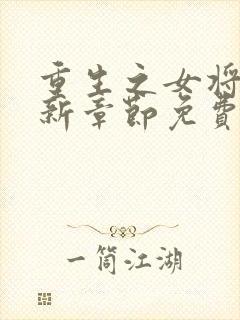 重生之女将
新章节免费
一筒江湖